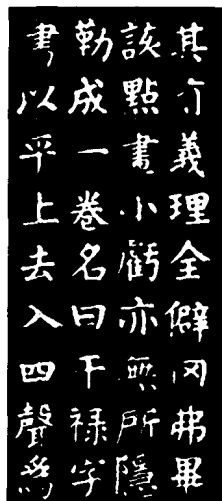 其亦義理全僻罔弗畢
該點畫小虧亦無所隱
勒成一卷名曰干禄字
書以平上去入四聲爲